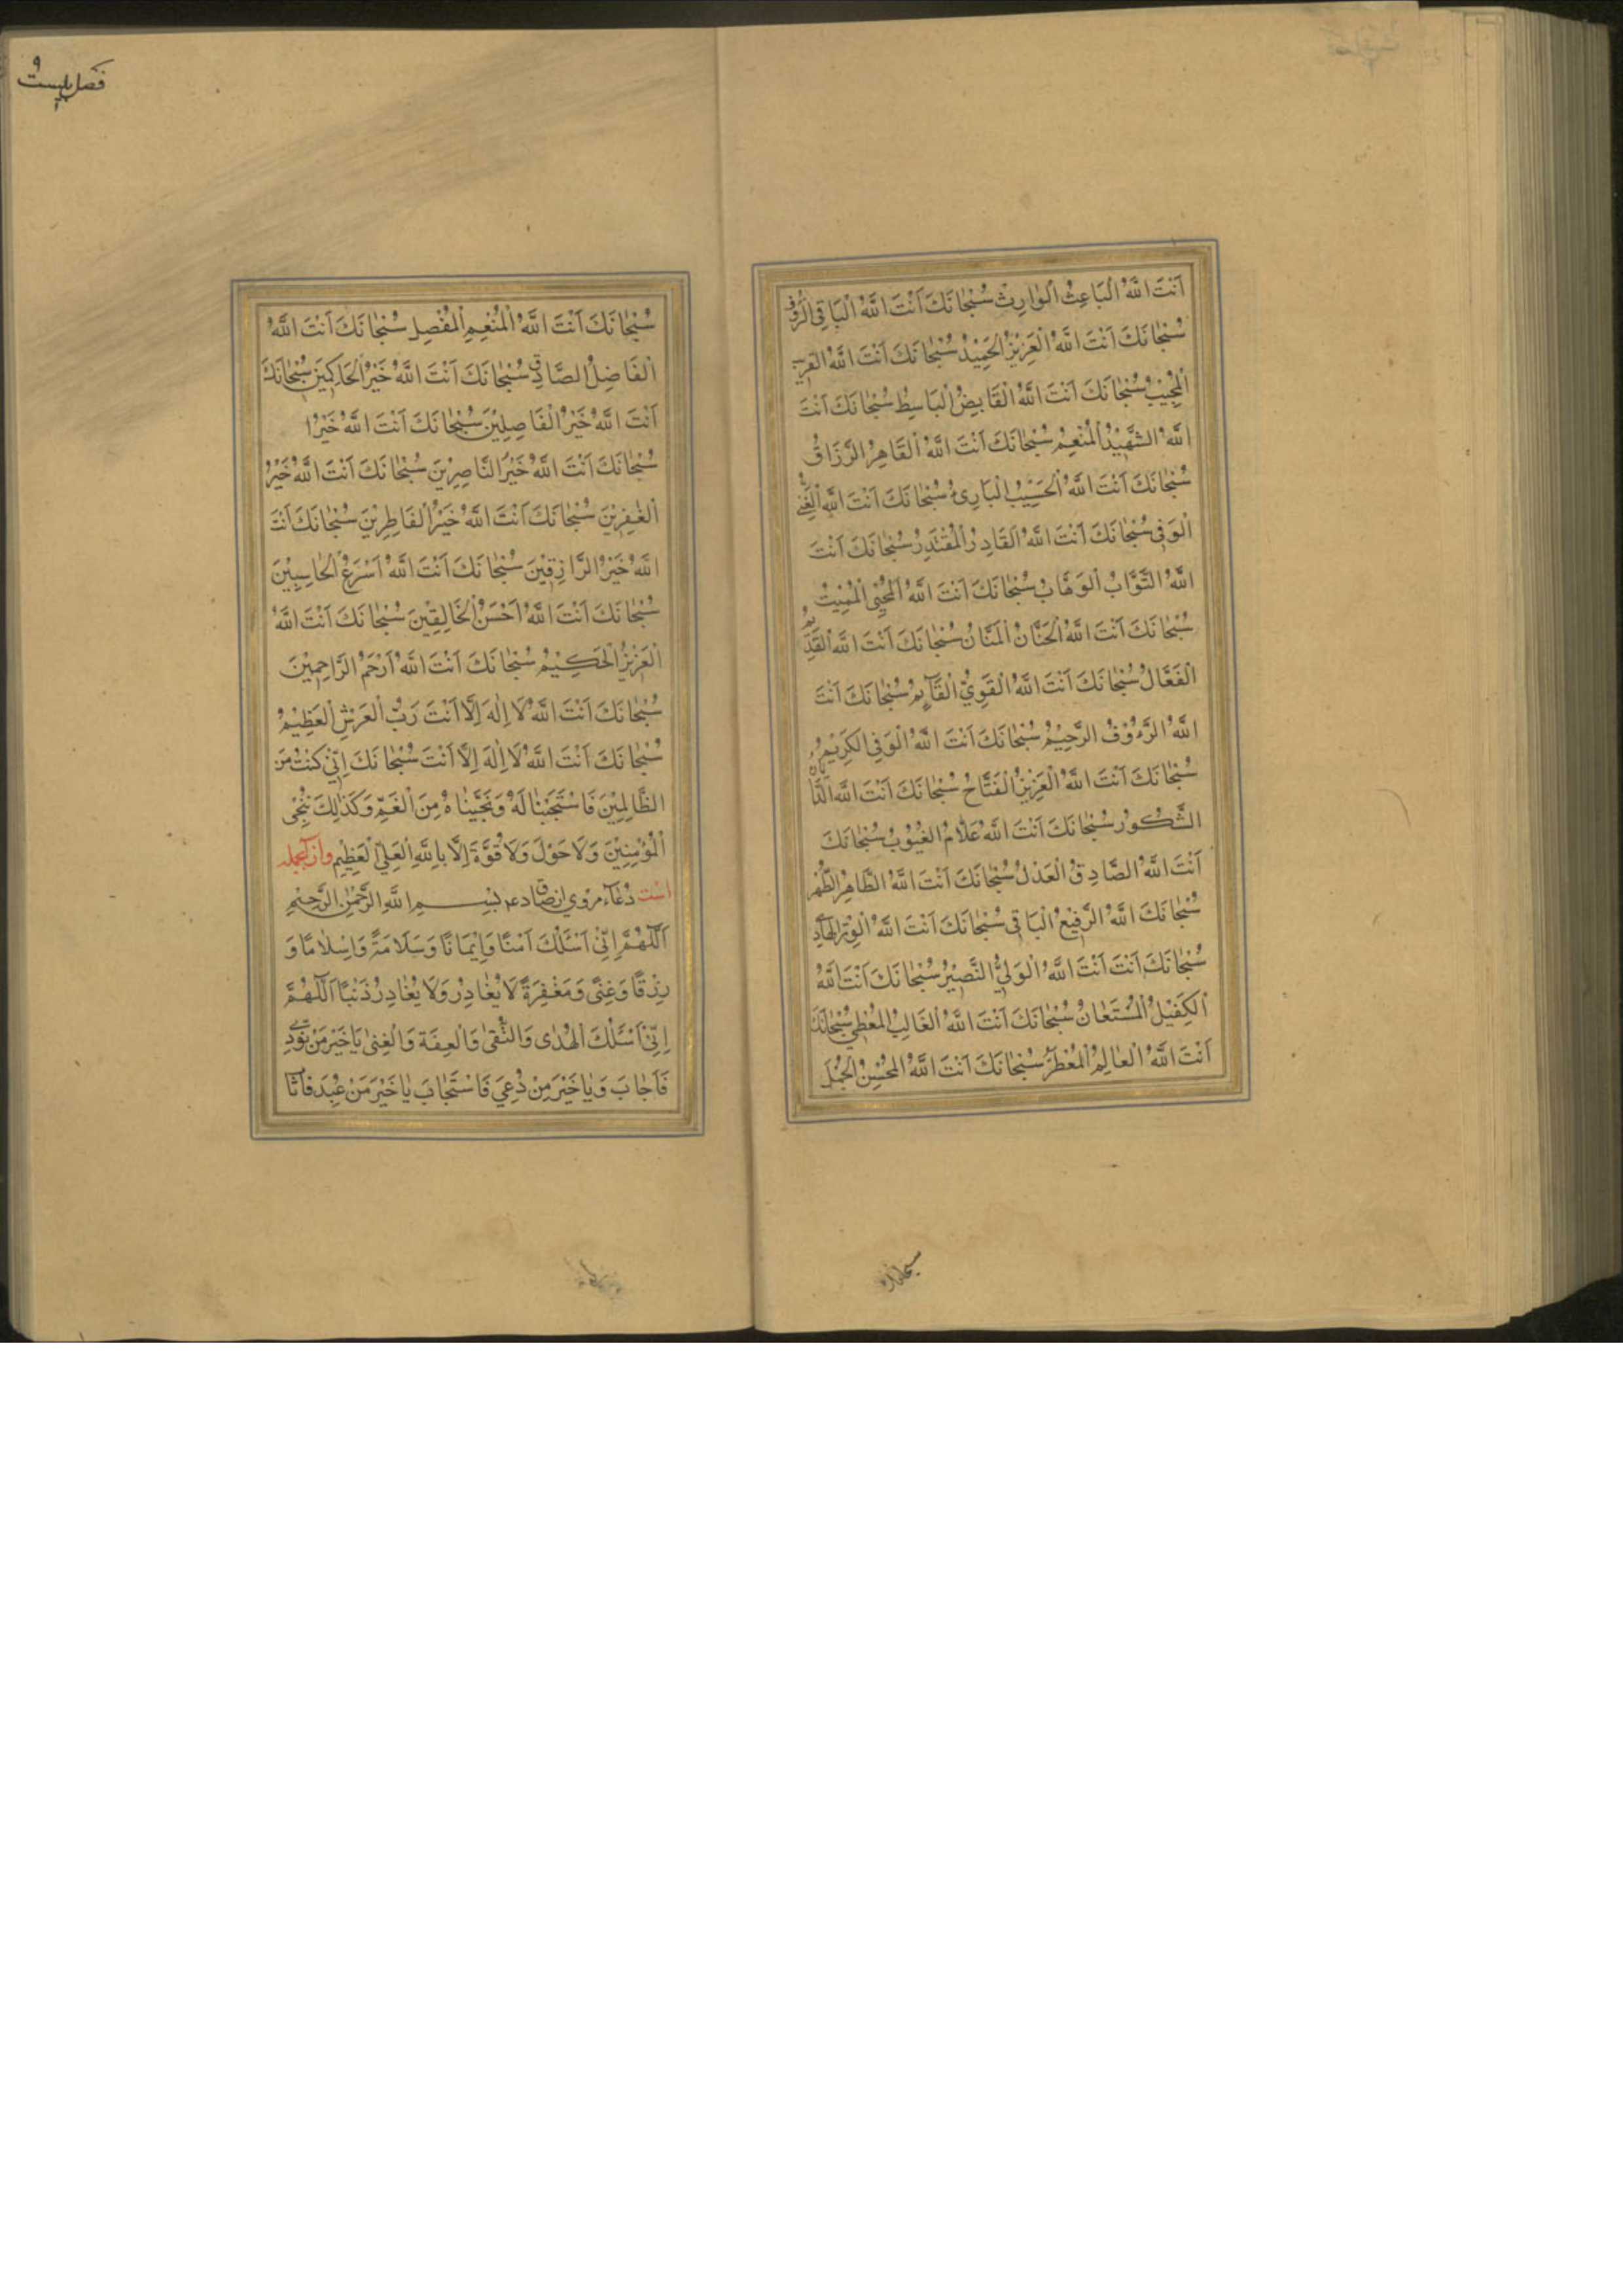 اَنْتَ اللّٰهُ الْبَاعِثُ الْوَارِثُ سُبْحَانَكَ اَنْتَ اللّٰهُ الْبَاقِي الرَّؤُفُ
سُبْحَانَكَ اَنْتَ اللّٰهُ الْعَزِيْزُ الْحَمِيْدُ سُبْحَانَكَ اَنْتَ اللّٰهُ الْقَرِيبُ
الْمُجِيْبُ سُبْحَانَكَ اَنْتَ اللّٰهُ الْقَابِضُ الْبَاسِطُ سُبْحَانَكَ اَنْتَ
اللّٰهُ الشَّهِيْدُ الْمُنْعِمُ سُبْحَانَكَ اَنْتَ اللّٰهُ الْقَاهِرُ الرَّزَاقُ
سُبْحَانَكَ اَنْتَ اللّٰهُ الْحَسِيْبُ الْبَارِئُ سُبْحَانَكَ اَنْتَ اللّٰهُ الْغَنِيُّ
الْوَفِي سُبْحَانَكَ اَنْتَ اللّٰهُ الْقَادِرُ الْمُقْتَدِرُ سُبْحَانَكَ اَنْتَ
اللّٰهُ التَّوَّابُ الْوَهَّابُ سُبْحَانَكَ اَنْتَ اللّٰهُ الْمُحْيِى الْمُمِيْتُ
سُبْحَانَكَ اَنْتَ اللّٰهُ الْحَنَّانُ الْمَنَّانُ سُبْحَانَكَ اَنْتَ اللّٰهُ الْقَدِيمُ
الْفَعَّالُ سُبْحَانَكَ اَنْتَ اللّٰهُ الْقَوِيُّ الْقَآئِمُ سُبْحَانَكَ اَنْتَ
اللّٰهُ الرَّؤُوْفُ الرَّحِيْمُ سُبْحَانَكَ اَنْتَ اللّٰهُ الْوَفِي الْكَرِيْمُ
سُبْحَانَكَ اَنْتَ اللّٰهُ الْعَزِيْزُ الْفَتَّاحُ سُبْحَانَكَ اَنْتَ اللّٰهُ الدَّيَّانُ
الشَّكُوْرُ سُبْحَانَكَ اَنْتَ اللّٰهُ عَلَّامُ الْغُيُوْبِ سُبْحَانَكَ
اَنْتَ اللّٰهُ الصَّادِقُ الْعَدْلُ سُبْحَانَكَ اَنْتَ اللّٰهُ الطَّاهِرُ الطُّهْرُ
سُبْحَانَكَ اللّٰهُ الرَّفِيْعُ الْبَاقِي سُبْحَانَكَ اَنْتَ اللّٰهُ الْوِتْرُ الْهَادِي
سُبْحَانَكَ اَنْتَ اَنْتَ اللّٰهُ الْوَلِيُّ النَّصِيْرُ سُبْحَانَكَ اَنْتَ اللّٰهُ
الْكَفِيْلُ الْمُسْتَعَانُ سُبْحَانَكَ اَنْتَ اللّٰهُ الْغَالِبُ الْمُعْطِي سُبْحَانَكَ
اَنْتَ اللّٰهُ الْعَالِمُ الْمُعْظَمُ سُبْحَانَكَ اَنْتَ اللّٰهُ الْمُحْسِنُ الْمُجْمِلُ
سبحانك
فصل بيست
۹
سُبْحَانَكَ اَنْتَ اللّٰهُ الْمُنْعِمِ الْمُفْصِلِ سُبْحَانَكَ اَنْتَ اللّٰهُ
الْفَاضِلُ الصَّادِقُ سُبْحَانَكَ اَنْتَ اللّٰهُ خَيْرُ الْحَاكِمِيْنَ سُبْحَانَكَ
اَنْتَ اللّٰهُ خَيْرُ الْفَاصِلِيْنَ سُبْحَانَكَ اَنْتَ اللّٰهُ خَيْرُ ا
سُبْحَانَكَ اَنْتَ اللّٰهُ خَيْرُ النَّاصِرِيْنَ سُبْحَانَكَ اَنْتَ اللّٰهُ خَيْرُ
الْغٰفِرِيْنَ سُبْحَانَكَ اَنْتَ اللّٰهُ خَيْرُ الْفَاطِرِيْنَ سُبْحَانَكَ اَنْتَ
اللّٰهُ خَيْرُ الرَّازِقِيْنَ سُبْحَانَكَ اَنْتَ اللّٰهُ اَسْرَعُ الْحَاسِبِيْنَ
سُبْحَانَكَ اَنْتَ اللّٰهُ اَحْسَنُ الْخَالِقِيْنَ سُبْحَانَكَ اَنْتَ اللّٰهُ
الْعَزِيْزُ الْحَكِيْمُ سُبْحَانَكَ اَنْتَ اللّٰهُ اَرْحَمُ الرَّاحِمِيْنَ
سُبْحَانَكَ اَنْتَ اللّٰهُ لَا اِلٰهَ اِلَّا اَنْتَ رَبُّ الْعَرْشِ الْعَظِيْمُ
سُبْحَانَكَ اَنْتَ اللّٰهُ لَا اِلٰهَ اِلَّا اَنْتَ سُبْحَانَكَ اِنِّيْ كُنْتُ مِنَ
الظَّالِمِيْنَ فَاسْتَجَبْنَا لَهُ وَنَجَّيْنَاهُ مِنَ الْغَمِّ وَكَذٰلِكَ نُنْجِى
الْمُؤْمِنِيْنَ وَلَا حَوْلَ وَلَا قُوَّةَ اِلَّا بِاللّٰهِ الْعَلِيِّ الْعَظِيْمِ و از آنجمله
است دُعَآء مروي از صادق ع م بِسْمِ اللّٰهِ الرَّحْمٰنِ الرَّحِيْمِ
اَللّٰهُمَّ اِنِّيْ اَسْئَلُكَ اَمْنًا وَاِيْمَانًا وَسَلَامَةً وَاِسْلَامًا وَ
رِزْقًا وَغِنًى وَمَغْفِرَةً لَا يُغَادِرُ وَلَا يُغَادِرُ ذَنْبًا اَللّٰهُمَّ
اِنِّيْ اَسْئَلُكَ الْهُدٰى وَالتُّقٰى وَالْعِفَّةَ وَالْغِنٰى يَا خَيْرَ مَنْ نُوْدِيَ
فَاَجَابَ وَيَا خَيْرَ مَنْ دُعِيَ فَاسْتَجَابَ يَا خَيْرَ مَنْ عُبِدَ فَاَثَا